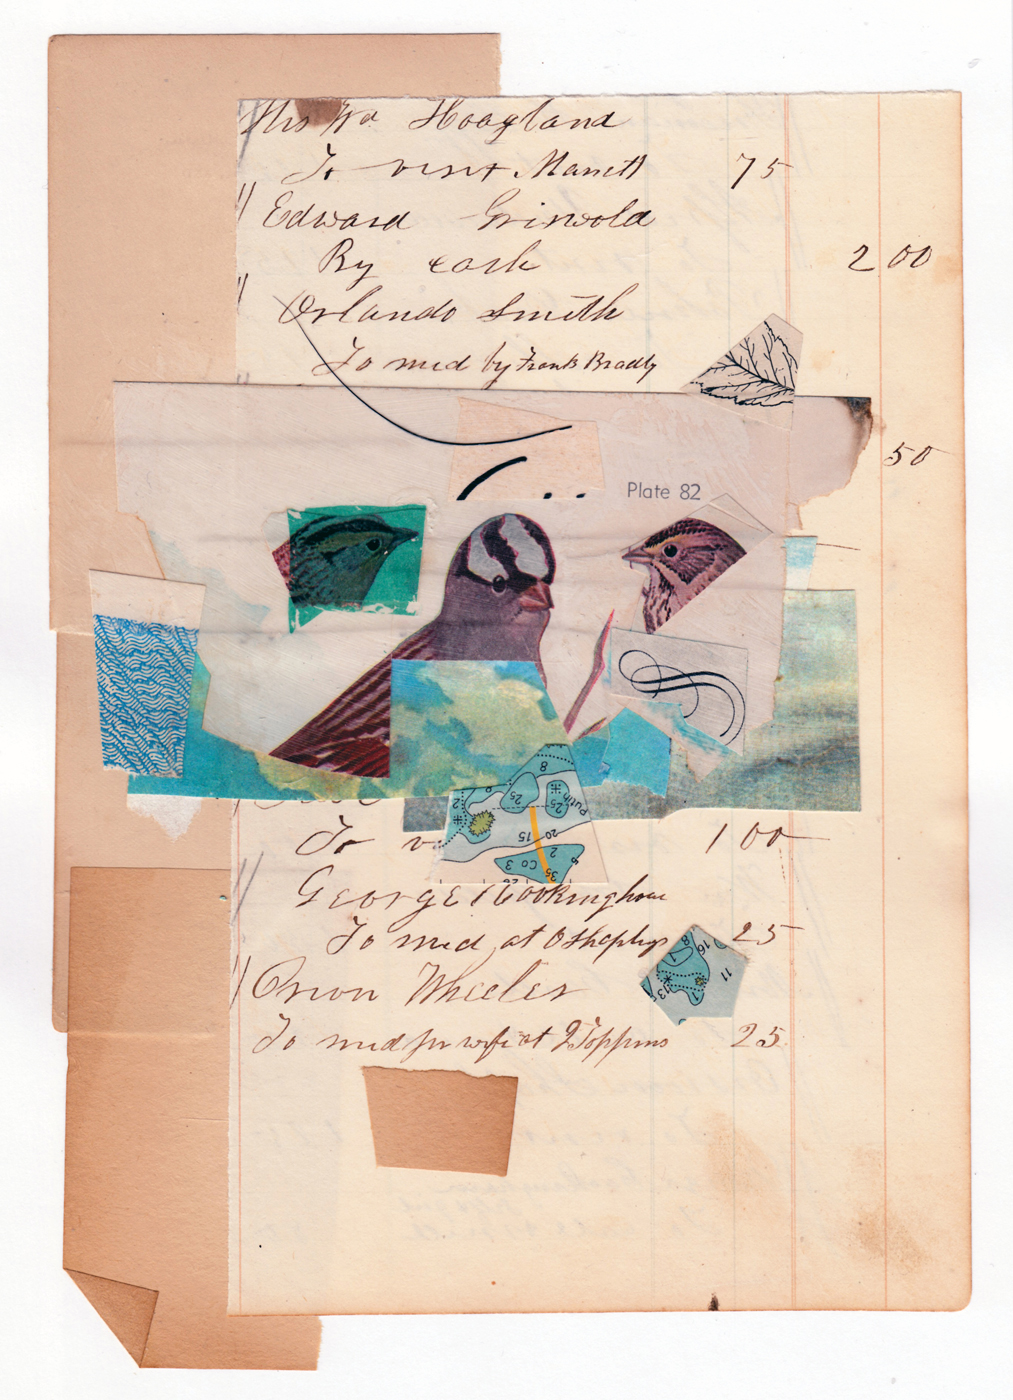 Mrs Wm Hoagland
To visit Marriett 75
Edward Griswold
By cash 2 00
Orlando Smith
To med by Frank Bradly
50
Plate 82
8
2 25 25 Putin
20
15
2
Co 3 35 5
To v 1 00
George Rookingham
To med at O Shaplys 25
8 16
1 11
13
Orson Wheeler
To med for wife at J Toppins 25